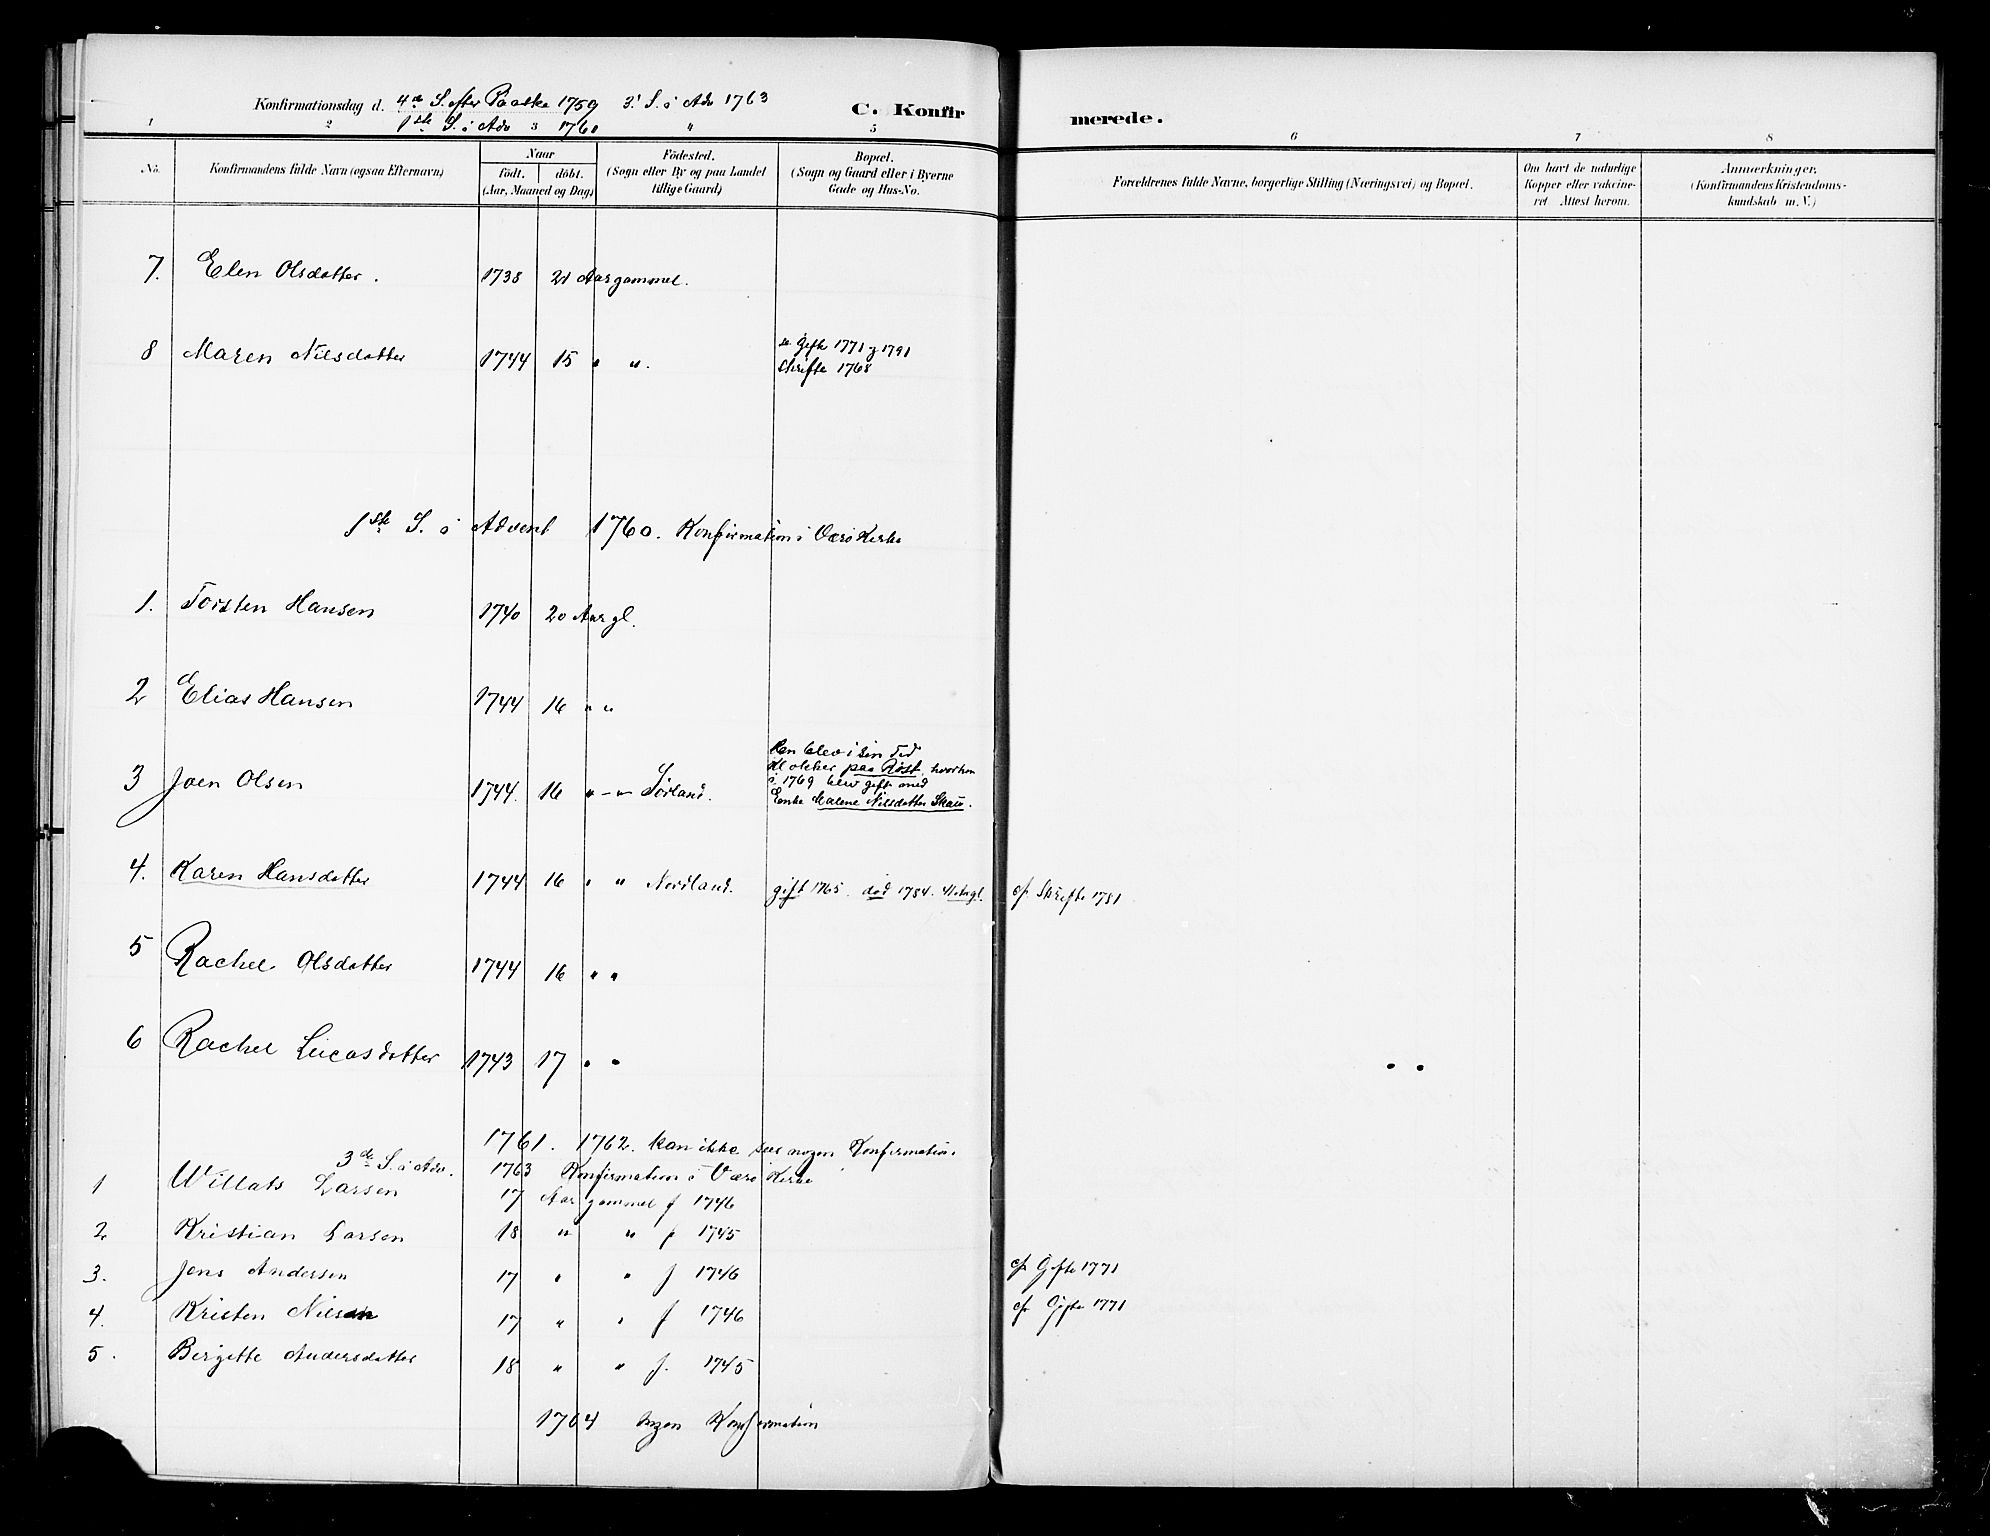 Konfirmationsdag d. 4de S. efter Paaske 1759 3' S. i Adv 1763
1ste S. i Adv 1760
C. Konfirmerede.
1 2 3 4 5 6 7 8
No. Konfirmandens fulde Navn (ogsaa Efternavn) Naar födt. döbt. (Aar, Maaned og Dag) Födested. (Sogn eller By og paa Landet tillige Gaard) Bopæl. (Sogn og Gaard eller i Byerne Gade og Hus-No. Forældrenes fulde Navne, borgerlige Stilling (Næringsvei) og Bopæl. Om havt de naturlige Kopper eller vakcineret. Attest herom. Anmærkninger. (Konfirmandens Kristendomskundskab m.V.)
7. Elen Olsdatter. 1738 21 Aar gammel.
8 Maren Nilsdatter 1744 15 " ". Gifte 1771 og 1791
Skrifte 1768
1ste S. i Advent 1760. Konfirmation i Værø Kirke
1. Torsten Hansen 1740 20 Aar gl.
2 Elias Hansen 1744 16 " "
3 Joen Olsen 1744. 16 " - " Sørland. Han blev i sin Tid
Klokker paa Røst, hvor han
i 1769 blev gift med
Enke Malene Nilsdatter Skau.
4. Karen Hansdatter 1744 16 " " Nordland. gift 1765. død 1784. 41 Aar gl. cfr Skrifte 1781
5 Rachel Olsdatter 1744 16 " "
6 Rachel Lucasdatter 1743 17 " "
1761. 1762. kan ikke sees nogen Konfirmation.
3de S. i Adv. 1763 Konfirmation i Værø Kirke
1 Willats Larsen 17 Aar gammel f 1746
2 Kristian Larsen 18 " " f 1745
3. Jens Andersen 17 " " f 1746 cfr Gifte 1771
4. Kristen Nilsen 17 " " f 1746 cfr Gifte 1771
5. Birgitte Andersdatter 18 " " f. 1745
1764 ingen Konfirmation